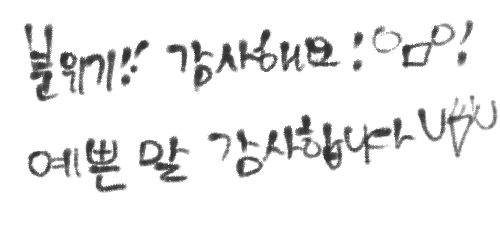 분위기!! 감사해요! ㅇㅁㅇ!
예쁜 말 감사합냐다 U